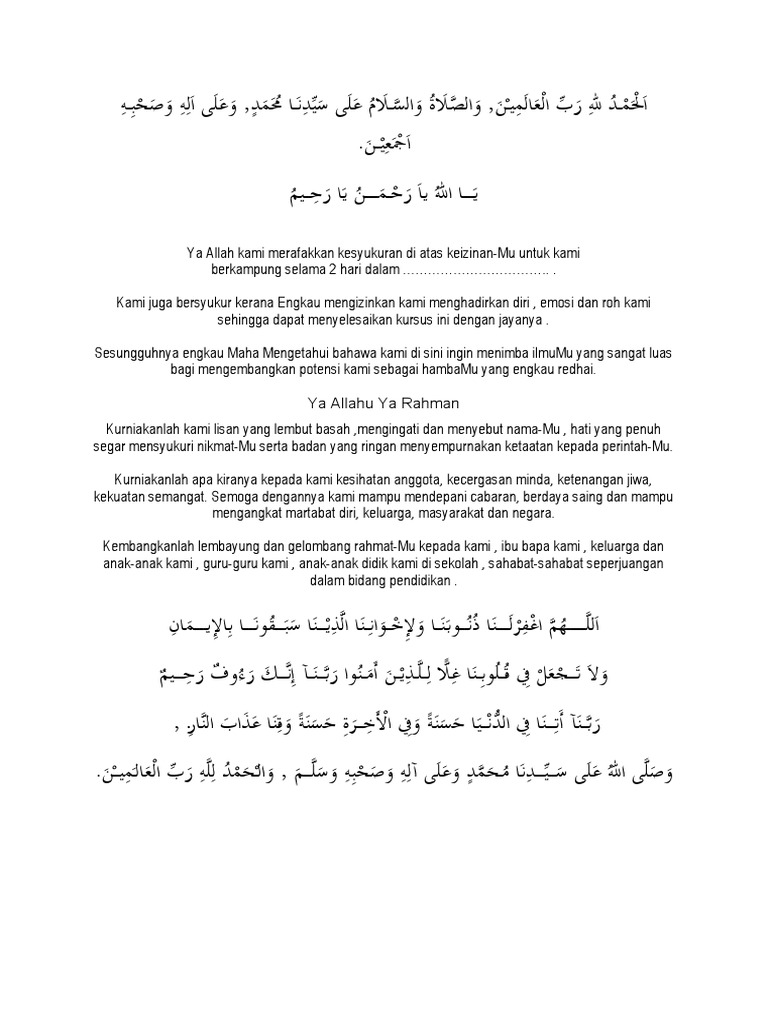 اَلْحَمْدُ للهِ رَبِّ الْعَالَمِيْنَ, وَالصَّلَاةُ وَالسَّلَامُ عَلَى سَيِّدِنَا مُحَمَدٍ, وَعَلَى اَلِهِ وَصَحْبِهِ
اَجْمَعِيْنَ.
يَا اللهُ ياَ رَحْمَنُ يَا رَحِيمُ
Ya Allah kami merafakkan kesyukuran di atas keizinan-Mu untuk kami
berkampung selama 2 hari dalam …………………………….. .
Kami juga bersyukur kerana Engkau mengizinkan kami menghadirkan diri , emosi dan roh kami
sehingga dapat menyelesaikan kursus ini dengan jayanya .
Sesungguhnya engkau Maha Mengetahui bahawa kami di sini ingin menimba ilmuMu yang sangat luas
bagi mengembangkan potensi kami sebagai hambaMu yang engkau redhai.
Ya Allahu Ya Rahman
Kurniakanlah kami lisan yang lembut basah ,mengingati dan menyebut nama-Mu , hati yang penuh
segar mensyukuri nikmat-Mu serta badan yang ringan menyempurnakan ketaatan kepada perintah-Mu.
Kurniakanlah apa kiranya kepada kami kesihatan anggota, kecergasan minda, ketenangan jiwa,
kekuatan semangat. Semoga dengannya kami mampu mendepani cabaran, berdaya saing dan mampu
mengangkat martabat diri, keluarga, masyarakat dan negara.
Kembangkanlah lembayung dan gelombang rahmat-Mu kepada kami , ibu bapa kami , keluarga dan
anak-anak kami , guru-guru kami , anak-anak didik kami di sekolah , sahabat-sahabat seperjuangan
dalam bidang pendidikan .
اَللَّهُمَّ اغْفِرْلَنَا ذُنُوبَنَا وَلإِخْوَانِنَا الَّذِيْنَا سَبَقُونَا بِالإِيمَانِ
وَلاَ تَجْعَلْ فِي قُلُوبِنَا غِلًّا لِلَّذِيْنَ أَمَنُوا رَبَّنَآ إِنَّكَ رَءُوفٌ رَحِيمٌ
رَبَّنَآ أَتِنَا فِي الدُّنْيَا حَسَنَةً وَفِي الْأَخِرَةِ حَسَنَةً وَقِنَا عَذَابَ النَّارِ ,
وَصَلَّى اللهُ عَلَى سَيِّدِنَا مُحَمَّدٍ وَعَلَى آلِهِ وَصَحْبِهِ وَسَلَّمَ , وَالْحَمْدُ لِلَّهِ رَبِّ الْعَالَمِيْنَ.